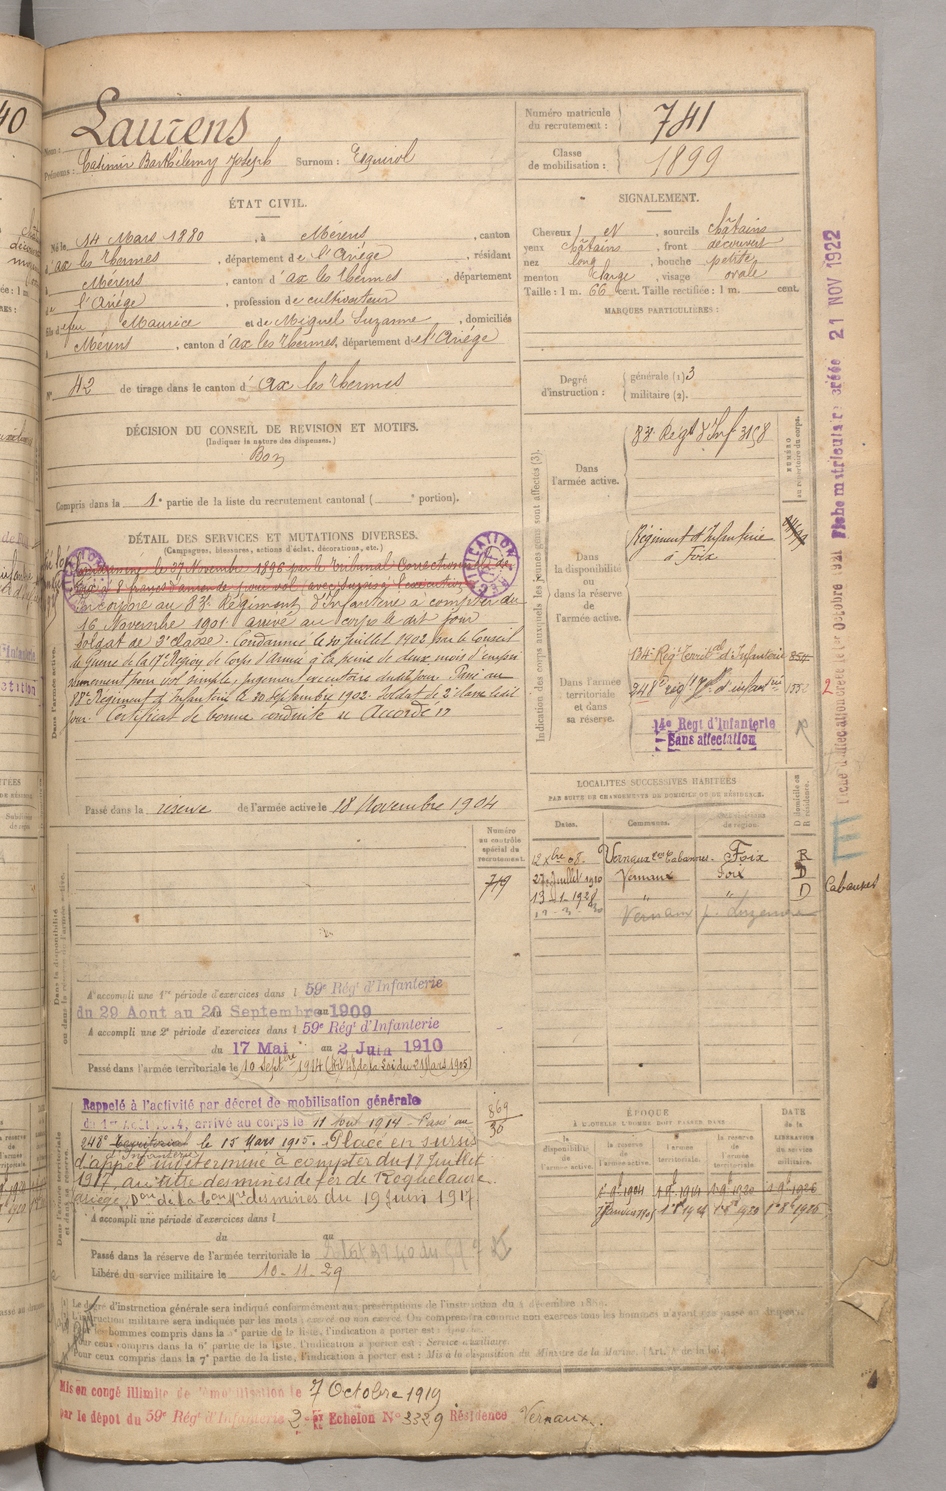 Laurens
Nom :
Prénoms : Casimir Barthélemy Joseph Surnom : Esquirol
Numéro matricule du recrutement : 741
Classe de mobilisation : 1899
ÉTAT CIVIL.
Né le 14 Mars 1880, à Mérens, canton
d'ax les Thermes, département de l'Ariége, résidant
à Mérens, canton d'ax les Thermes, département
de l'Ariége, profession de cultivateur
fils de feu Maurice et de Miquel Suzanne, domiciliés
à Mérens, canton d'ax les Thermes, département de l'Ariége
N° 42 de tirage dans le canton d'ax les Thermes
SIGNALEMENT.
Cheveux N, sourcils châtains
yeux châtains, front découvert
nez long, bouche petite
menton large, visage ovale
Taille : 1 m. 66 cent. Taille rectifiée : 1 m. cent.
MARQUES PARTICULIÈRES :
Degré d'instruction : générale (1) 3
militaire (2).
DÉCISION DU CONSEIL DE REVISION ET MOTIFS.
(Indiquer la nature des dispenses.)
Bon
Compris dans la 1e partie de la liste du recrutement cantonal ( e portion).
DÉTAIL DES SERVICES ET MUTATIONS DIVERSES.
(Campagnes, blessures, actions d'éclat, décorations, etc.)
Condamné le 27 Novembre 1896 par le Tribunal Correctionnel de
Foix à 8 francs d'amende pour vol avec sursis à l'exécution
Incorporé au 83e Régiment d'Infanterie à compter du
16 Novembre 1901 arrivé au corps le dit jour
soldat de 2e classe. Condamné le 30 Juillet 1902 par le Conseil
de guerre de la 17e Région de Corps d'Armée à la peine de deux mois d'empri
sonnement pour vol simple, jugement exécutoire dudit jour. Passé au
88e Régiment d'Infanterie le 20 septembre 1902. Soldat de 2e classe le dit
jour. Certificat de bonne conduite "Accordé"
Passé dans la réserve de l'armée active le 18 Novembre 1904
Indication des corps auxquels les jeunes gens sont affectés (3).
NUMÉRO au répertoire du corps.
Dans l'armée active.
83e Régt d'Inf 3158
Dans la disponibilité ou dans la réserve de l'armée active.
Régiment d'Infanterie
à Foix
Dans l'armée territoriale et dans sa réserve.
134e Régt Territal d'Infanterie
248e régt d'infanterie
14e Regt d'Infanterie
Sans affectation
LOCALITÉS SUCCESSIVES HABITÉES
PAR SUITE DE CHANGEMENTS DE DOMICILE OU DE RÉSIDENCE.
Dates. Communes. Subdivisions de région. D domicile ou R résidence.
12 Xbre 08. Vernaux con Cabannes. Foix R
27 Juillet 1920 Vernaux Foix D
13-1-1928 " " D
Vernaux
Cabannes
Numéro au contrôle spécial du recrutement.
719
A accompli une 1re période d'exercices dans l 59e Régt d'Infanterie
du 29 Aout au 20 Septembre 1909
A accompli une 2e période d'exercices dans l 59e Régt d'Infanterie
du 17 Mai au 2 Juin 1910
Passé dans l'armée territoriale le 10 Septbre 1914 (de la Loi du 21 Mars 1905)
Rappelé à l'activité par décret de mobilisation générale
du 1er Août 1914, arrivé au corps le 11 Aout 1914. Passé au
248e Territorial d'Infanterie le 15 Mars 1915. Placé en sursis
d'appel indéterminé à compter du 17 Juillet
1917, au titre des mines de fer de Roquelaure
Ariège, Don de la 6on Mre des mines du 19 Juin 1917
869
30
A accompli une période d'exercices dans l
du au
Passé dans la réserve de l'armée territoriale le
Libéré du service militaire le 10-11-29
ÉPOQUE
À LAQUELLE L'HOMME DOIT PASSER DANS
DATE de la LIBÉRATION du service militaire.
la disponibilité de l'armée active. la réserve de l'armée active. l'armée territoriale. la réserve de l'armée territoriale.
Le degré d'instruction générale sera indiqué conformément aux prescriptions de l'instruction du
Pour ceux compris dans la 6e partie de la liste, l'indication à porter est : Service auxiliaire.
Pour ceux compris dans la 7e partie de la liste, l'indication à porter est : Mis à la disposition du Ministre de la Marine.
Mis en congé illimité de démobilisation le 7 Octobre 1919
par le dépot du 59e Régt d'Infanterie 2e Echelon N° 3329 Résidence Vernaux.
Fiche matriculaire créée 21 NOV 1922